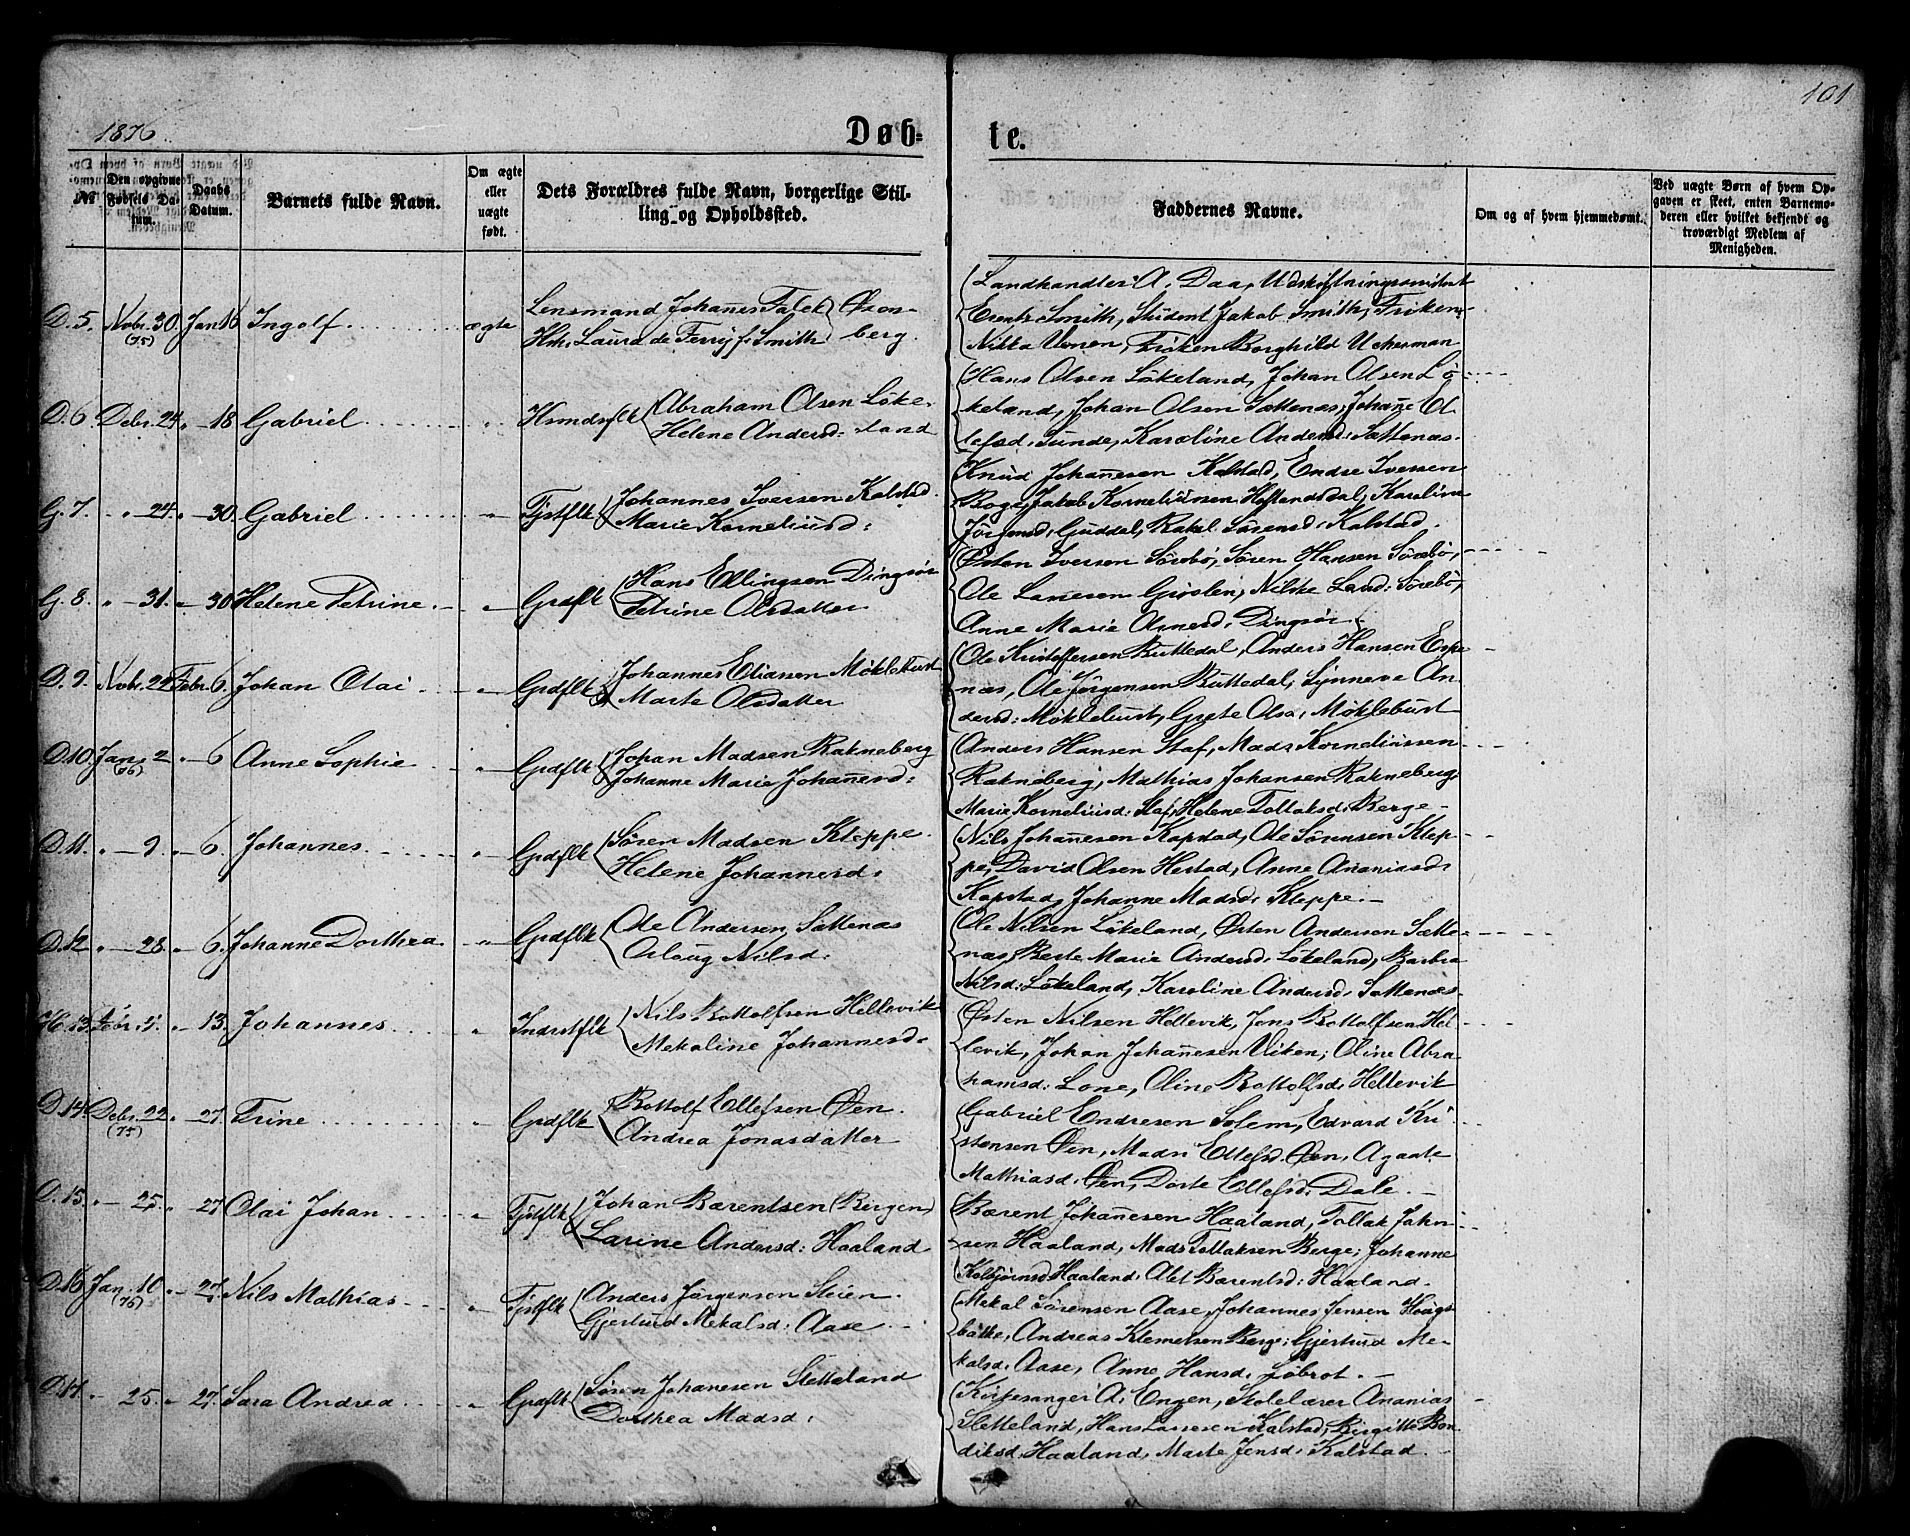 1876.
101
Døb-
te.
№
Den opgivne Fødsels Datum.
Daabs Datum.
Barnets fulde Navn.
Om ægte eller uægte født.
Dets Forældres fulde Navn, borgerlige Stilling og Opholdssted.
Faddernes Navne.
Om og af hvem hjemmedømt.
Ved uægte Børn af hvem Opgaven er skeet, enten Barnemoderen eller hvilket bekjendt og troværdigt Medlem af Menigheden.
D. 5. Novbr. 30. (75) Jan 16 Ingolf ægte
Lensmand Johannes Falck
Laura de Ferry f. Smith berg.
Landhandler A. Daa, Udskiftningsassistent
Smith, Student Jakob Smith, Frøken
Nikka Frøken Borghild Ucherman
D. 6. Debr. 24. „ 18 Gabriel „
Hsmdsflk Abraham Olsen Løke-
Helene Andersd: land
Hans Olsen Løkeland, Johan Olsen Lø-
keland, Johan Olsen Sættenæs, Johanne El-
lefsd. Sunde, Karoline Andersd. Sættenæs.
G. 7. „ 24. „ 30. Gabriel „
Tjstflk Johannes Iversen Kalstad.
Marie Korneliusd:
Knud Johanesen Kalstad, Endre Iversen
Boge, Jakob Korneliusen Hestandsdal, Karoline
Jørgensd. Guddal, Rakel Sørensd. Kalstad.
G. 8. „ 31. „ 30 Helene Petrine. „
Grdflk Hans Ellingsen Dingsør
Petrine Olsdatter
Østen Iversen Sørebø, Søren Hansen Sørebø,
Ole Lassesen Nilske Sørebø,
Anne Marie Dingsør
D. 9. Novbr. 22 Febr. 6. Johan Olai „
Grdflk Johannes Eliassen Møklebust
Marte Olsdatter
Ole Kristoffersen Buttedal, Anders Hansen Espe
næs, Ole Jørgensen Buttedal, Synneve An-
dersd: Møklebust, Grete Olsd. Møklebust
D. 10. Jan. 2 (76) „ 6 Anne Sophie „
Grdflk Johan Madsen Rakneberg
Johanne Marie Johanesd:
Anders Hansen Staf, Mads Korneliussen
Rakneberg, Mathias Johansen Rakneberg,
Marie Korneliusd: Staf, Helene Tollaksd. Berge
D. 11. „ 9. „ 6. Johannes. „
Grdflk Søren Madsen Kleppe.
Helene Johannesd:
Nils Johanesen Kapstad, Ole Sørensen Klep-
pe, David Olsen Hestad, Anne Ananiasd:
Kapstad, Johanne Madsd: Kleppe.
D. 12 „ 28 „ 6. Johanne Dorthea „
Grdflk Ole Andersen Sættenæs
Oloug Nilsd:
Ole Nilsen Løkeland, Østen Andersen Sætte-
næs, Berte Marie Andersd. Løkeland, Barbra
Nilsd: Løkeland, Karoline Andersd. Sættenæs
H. 13. Febr. „ 13. Johannes „
Indrstflk Nils Rottolfsen Hellevik
Mekaline Johannesd.
Østen Nilsen Hellevik, Jens Rottolfsen Hel-
levik, Johan Johanesen Viken, Oline Abra-
hamsd: Lone, Oline Rottolfsd. Hellevik
D. 14. Debr. 22 (75) „ 27. Trine „
Grdflk Rottolf Ellefsen Øen.
Andrea Jonasdatter
Gabriel Endresen Solem, Edvard Kri-
stensen Øen, Mads Ellefsd. Øen, Agaate
Mathiasd. Øen, Dorte Ellefsd. Dale.
D. 15. „ 25. „ 27 Olai Johan „
Tjstflk Johan Bærentsen (Bergen)
Larine Andersd: Haaland
Bærent Johanesen Haaland, Tollak John-
sen Haaland, Mads Tollaksen Berge, Johanne
Kolbjørnsd. Haaland, Alet Bærentsd: Haaland.
D. 16 Jan. 10 (76) „ 27. Nils Mathias „
Tjstflk Anders Jørgensen Steien.
Gjertrud Mekalsd: Aase
Mekal Sørensen Aase, Johannes Jensen Haugs-
bakke, Andreas Klemetsen Berge, Gjertrud Me-
kalsd. Aase, Anne Hansd.
D. 17. „ 25. „ 27. Sara Andrea „
Grdflk Søren Johanesen Sletteland
Dorthea Madsd:
Kirkesanger A. Engen, Skolelærer Ananias
Sletteland, Hans Lassesen Kalstad, Birgitte Ben-
diksd. Haaland, Marte Jensd. Kalstad.